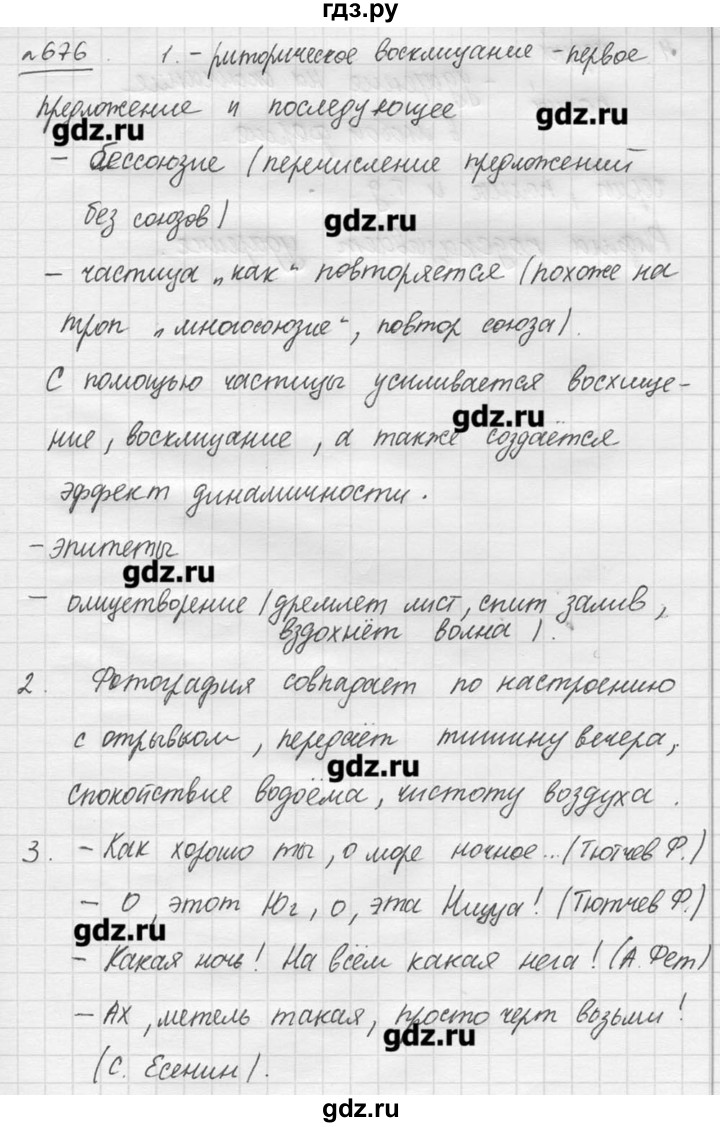 гдз.ру
№676. 1. - риторическое восклицание - первое
предложение и последующее
gdz.ru
gdz.ru
- бессоюзие (перечисление предложений
без союзов)
gdz.ru
- частица „как“ повторяется (похоже на
троп „многосоюзие“, повтор союза).
С помощью частицы усиливается восхище-
gdz.ru
ние, восклицание, а также создаётся
эффект динамичности.
- эпитеты
gdz.ru
- олицетворение (дремлет лист, спит залив,
вздохнёт волна).
2. Фотография совпадает по настроению
с отрывком, передаёт тишину вечера,
gdz.ru
спокойствие водоёма, чистоту воздуха.
3. - Как хорошо ты, о море ночное... (Тютчев Ф.)
- О, этот Юг, о, эта Ницца! (Тютчев Ф.)
gdz.ru
- Какая ночь! На всём какая нега! (А. Фет)
- Ах, метель такая, просто черт возьми!
gdz.ru
(С. Есенин).
gdz.ru